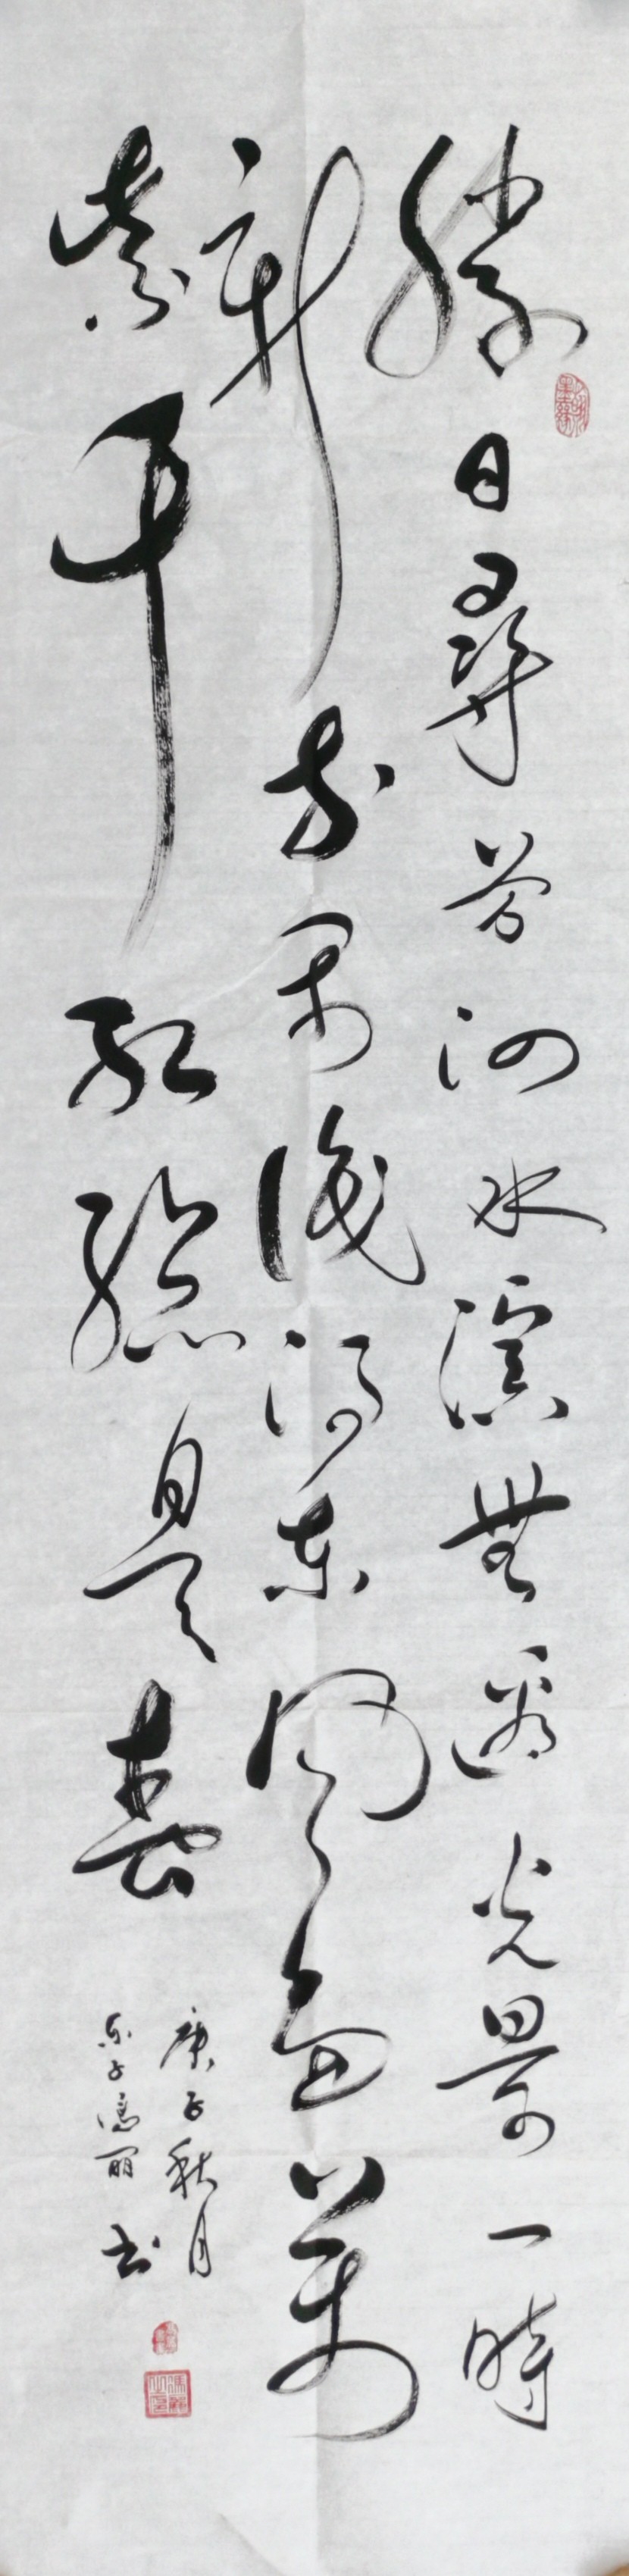 勝日尋芳泗水濱無邊光景一時
新等閒識得東風面萬
紫千紅總是春
庚子秋月
馮丽书